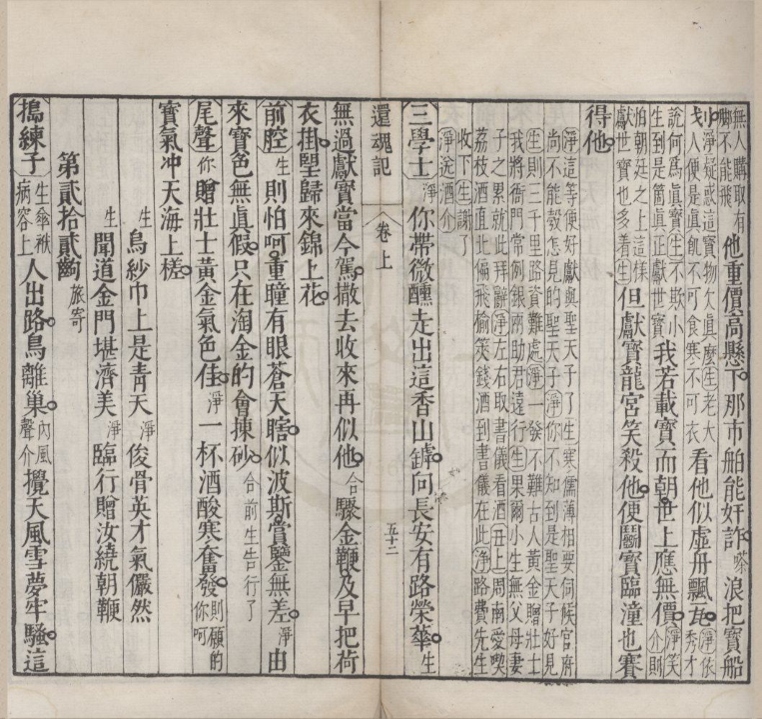 無人購取有
脚不能飛他重價高懸下那市舶能奸詐嗏浪把寶船
划淨疑惑這寶物欠眞麽生老大
人便是眞飢不可食寒不可衣看他似虛舟飄瓦淨依
秀才
說何爲眞寶生不欺小
生到是箇眞正獻世寶我若載寶而朝世上應無價淨笑
介則
怕朝廷之上這樣
獻世寶也多着生但獻寶龍宮笑殺他便鬭寶臨潼也賽
得他
淨這等便好獻與聖天子了生寒儒薄相要伺候官府
尚不能勾怎見的聖天子淨你不知到是聖天子好見
生則三千里路資難處淨一發不難古人黃金贈壯士
我將衙門常例銀兩助君遠行生果爾小生無父母妻
子之累就此拜辭淨左右取書儀看酒丑上周南愛喫
荔枝酒直北偏飛榆莢錢酒到書儀在此淨路費先生
收下生謝了
淨送酒介
三學士淨你帶微醺走出這香山罅向長安有路榮華生
還魂記
卷上
五十二
無過獻寶當今駕撒去收來再似他合驟金鞭及早把荷
衣掛望歸來錦上花
前腔生則怕呵重瞳有眼蒼天瞎似波斯賞鑒無差淨由
來寶色無眞假只在淘金的會揀砂合前生告行了
尾聲你贈壯士黃金氣色佳淨一杯酒酸寒奮發則願的
你呵
寶氣冲天海上槎
生烏紗巾上是靑天 淨俊骨英才氣儼然
生聞道金門堪濟美 淨臨行贈汝繞朝鞭
第貳拾貳齣旅寄
搗練子生傘袱
病容上人出路鳥離巢內風
聲介攪天風雪夢牢騷這